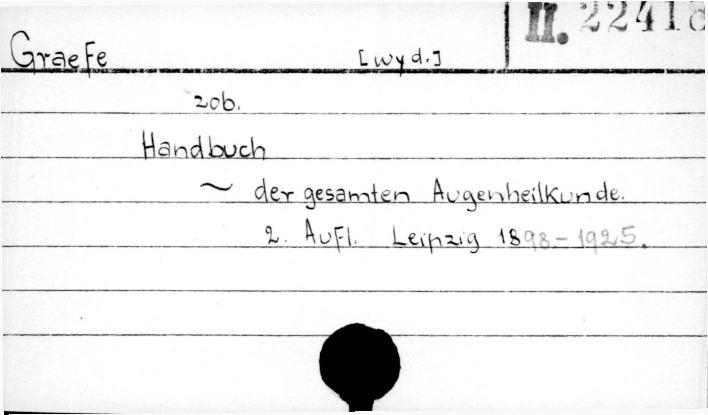 II. 22418
Graefe [wyd.]
zob.
Handbuch
~ der gesamten Augenheilkunde.
2. Aufl. Leipzig 1898-1925.